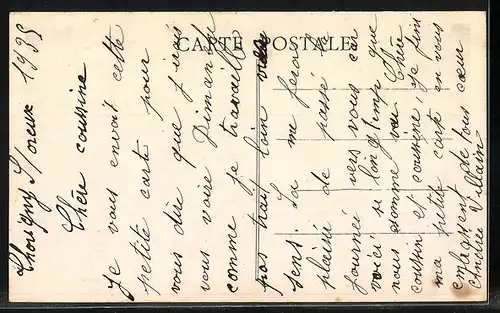 CARTE POSTALE
Thourgny s/oreuse 1935
Chère cousine
Je vous envoit cette
petite carte pour
vous dire que j'irais
vous voire Dimanche
comme je travaille
pas trais loin vien
sens. Sa me ferai
plaisié de passé la
journée vers vous car
voici si longtemp que
nous somme vu Chère
cousin et cousine, je fini
ma petite carte en vous
embrassent de tous cœur
Andrée Villain